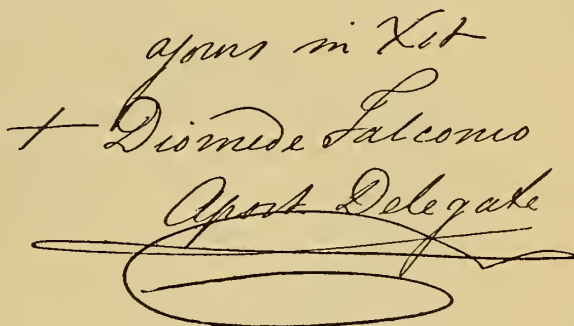 yours in Xst
+ Diomede Falconio
Apost. Delegate